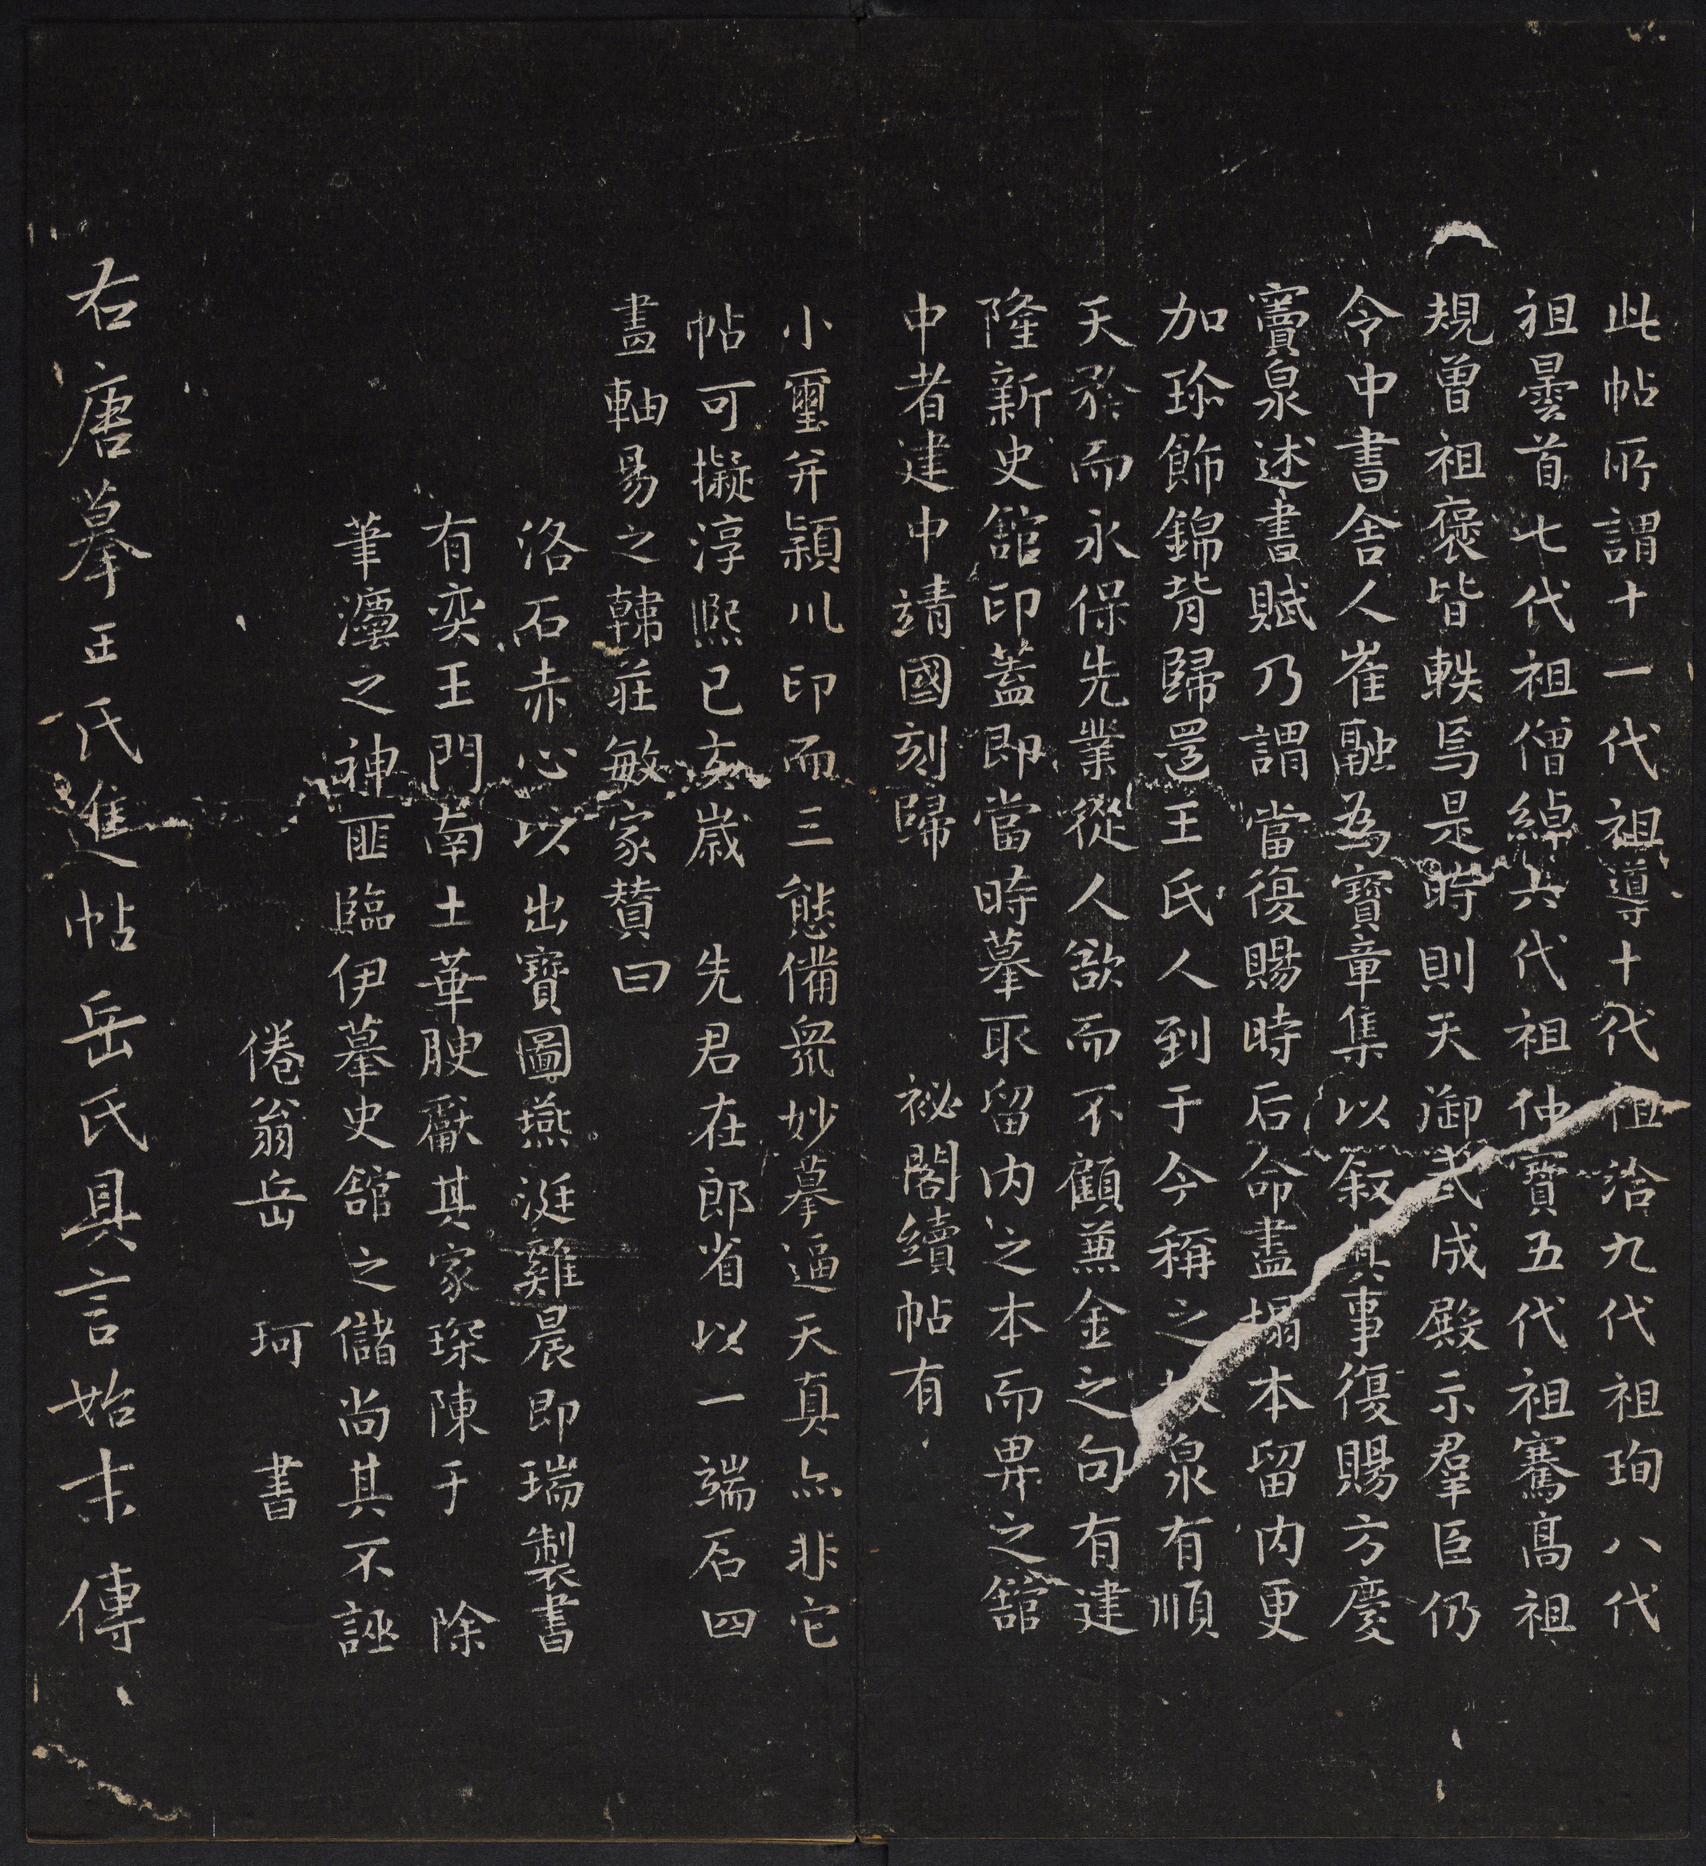 此帖所謂十一代祖導十代祖洽九代祖珣八代
祖曇首七代祖僧綽六代祖仲寶五代祖騫高祖
規曾祖褒皆軼焉是時則天御武成殿示羣臣仍
令中書舍人崔融為寶章集以叙其事復賜方慶
竇泉述書賦乃謂當復賜時后命盡搨本留內更
加珎飾錦背歸還王氏人到于今稱之泉有順
天發而永保先業從人欲而不顧兼金之句有建
隆新史舘印蓋即當時摹取留內之本而畀之舘
中者建中靖國刻歸 祕閣續帖有
小璽并潁川印而三態備眾妙摹逼天真亦非它
帖可擬淳熙已亥歲 先君在郎省以一端石四
畫軸易之韓莊敏家贊曰
洛石赤心以出寶圖燕涎雞晨即瑞製書
有奕王門南土華腴獻其家琛陳于 除
筆灋之神匪臨伊摹史舘之儲尚其不誣
倦翁岳 珂 書
右唐摹王氏進帖岳氏具言始末傳